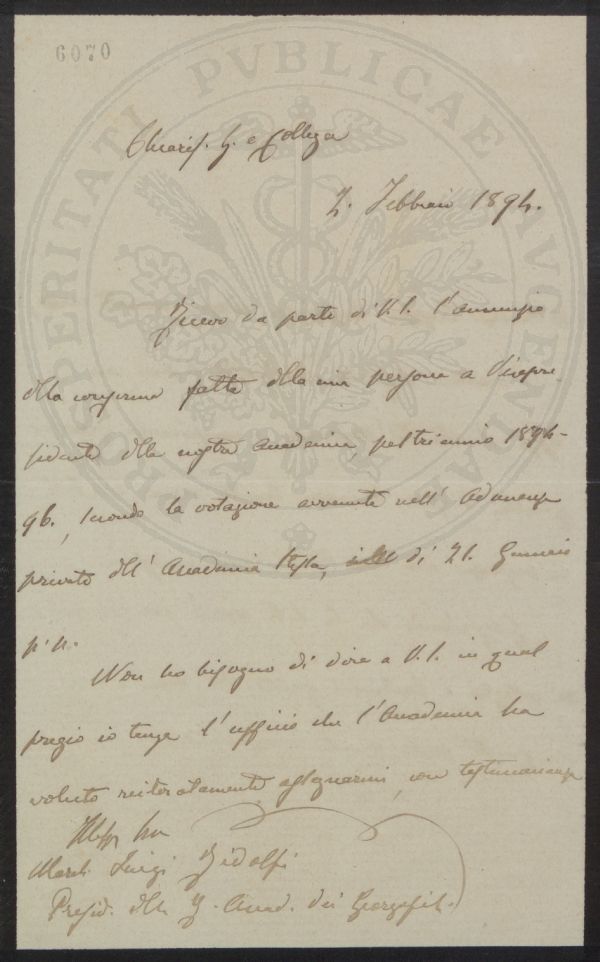 6070
PROSPERITATI PVBLICAE AVGENDAE
Chiaris. Sig. e Collega
2. Febbraio 1894.
Ricevo da parte di V. S. l'annunzio
della conferma fatta della mia persona a Vicepre-
sidente della nostra Accademia, pel triennio 1894-
96, secondo la votazione avvenuta nell' Adunanza
privata dell' Accademia stessa, di 21. Gennaio
p.p.
Non ho bisogno di dire a V. S. in qual
pregio io tenga l'ufficio che l'Accademia ha
voluto reiteratamente assegnarmi, con testimonianza
March. Luigi Ridolfi
Presid. della R. Accad. dei Georgofili.